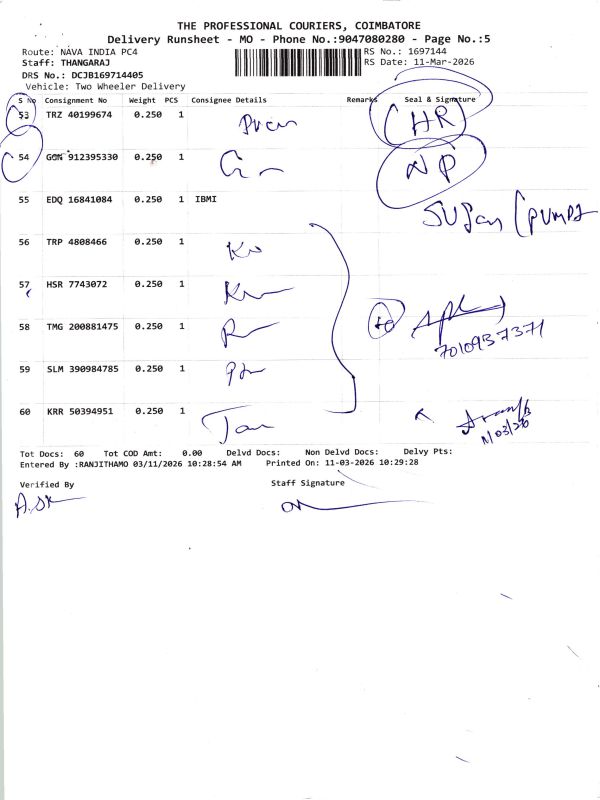 THE PROFESSIONAL COURIERS, COIMBATORE
Delivery Runsheet - MO - Phone No.:9047080280 - Page No.:5
Route: NAVA INDIA PC4
RS No.: 1697144
Staff: THANGARAJ
RS Date: 11-Mar-2026
DRS No.: DCJB169714405
Vehicle: Two Wheeler Delivery
S No Consignment No Weight PCS Consignee Details Remarks Seal & Signature
53 TRZ 40199674 0.250 1 (HR)
54 GON 912395330 0.250 1 NP
55 EDQ 16841084 0.250 1 IBMI
56 TRP 4808466 0.250 1
57 HSR 7743072 0.250 1
58 TMG 200881475 0.250 1
7010937371
59 SLM 390984785 0.250 1
60 KRR 50394951 0.250 1
11/03/26
Tot Docs: 60 Tot COD Amt: 0.00 Delvd Docs: Non Delvd Docs: Delvy Pts:
Entered By :RANJITHAMO 03/11/2026 10:28:54 AM Printed On: 11-03-2026 10:29:28
Verified By Staff Signature